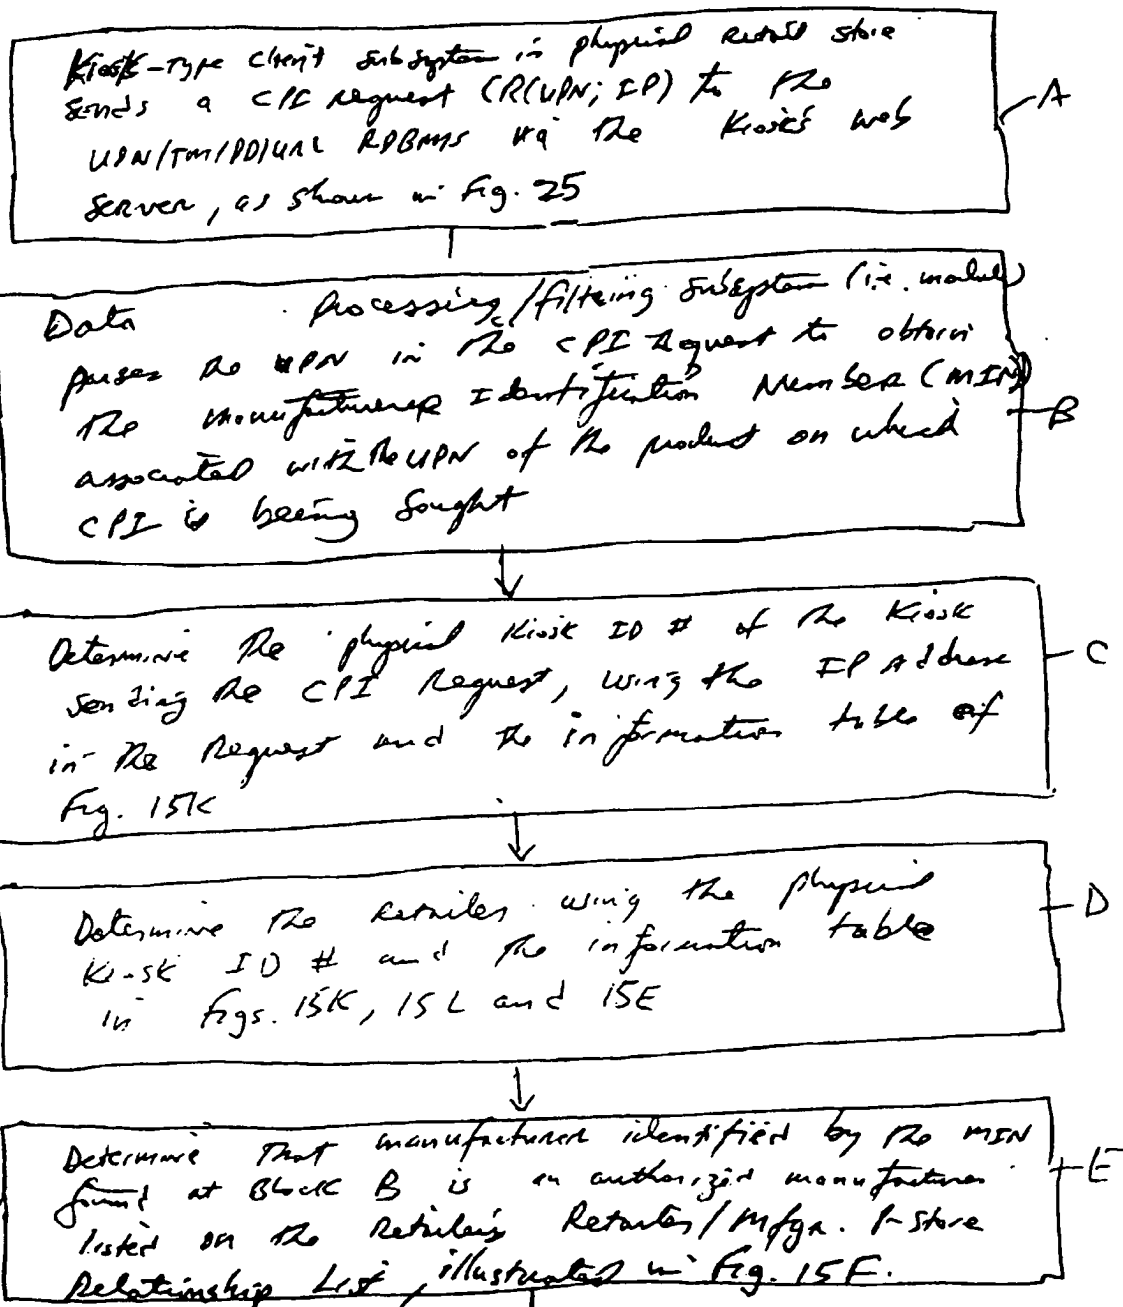 Kiosk-Type client subsystem in physical retail store
sends a CPI request (R(UPN; IP) to the
UPN/TM/PD/URL RDBMS via the Kiosk's web
server, as shown in Fig. 25
A
Data Processing/filtering subsystem (i.e. module)
parses the UPN in the CPI request to obtain
the manufacturer Identification Number (MIN)
associated with the UPN of the product on which
CPI is being sought
B
Determine the physical Kiosk ID # of the Kiosk
sending the CPI Request, using the IP Address
in the Request and the information table of
Fig. 15K
C
Determine the retailer using the physical
Kiosk ID # and the information table
in Figs. 15K, 15L and 15E
D
Determine that manufacturer identified by the MIN
found at Block B is an authorized manufacturer
listed on the Retailer's Retailer/Mfgr. P-Store
Relationship List, illustrated in Fig. 15F.
E